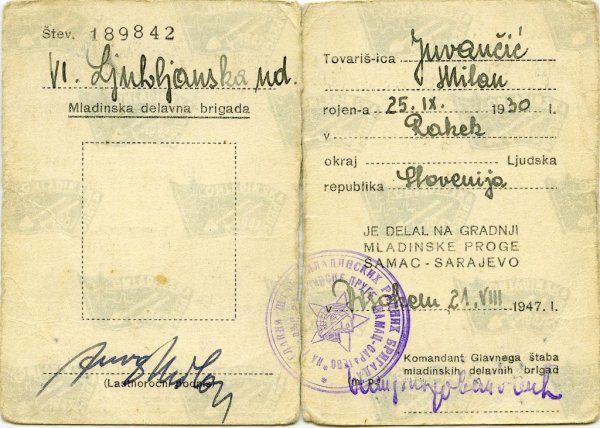 Štev. 189842
VI. Ljubljanska md.
Mladinska delavna brigada
(Lastnoročni podpis)
Tovariš-ica Juvančič
Milan
rojen-a 25. IX. 1930 l.
v Rakek
okraj Ljudska
republika Slovenija
JE DELAL NA GRADNJI
MLADINSKE PROGE
ŠAMAC-SARAJEVO
v 21. VIII 1947. l.
Komandant Glavnega štaba
mladinskih delavnih brigad
(m. p.)
ОМЛАДИНСКИХ РАДНИХ БРИГАДА
ПРУГЕ ШАМАЦ-САРАЈЕВО